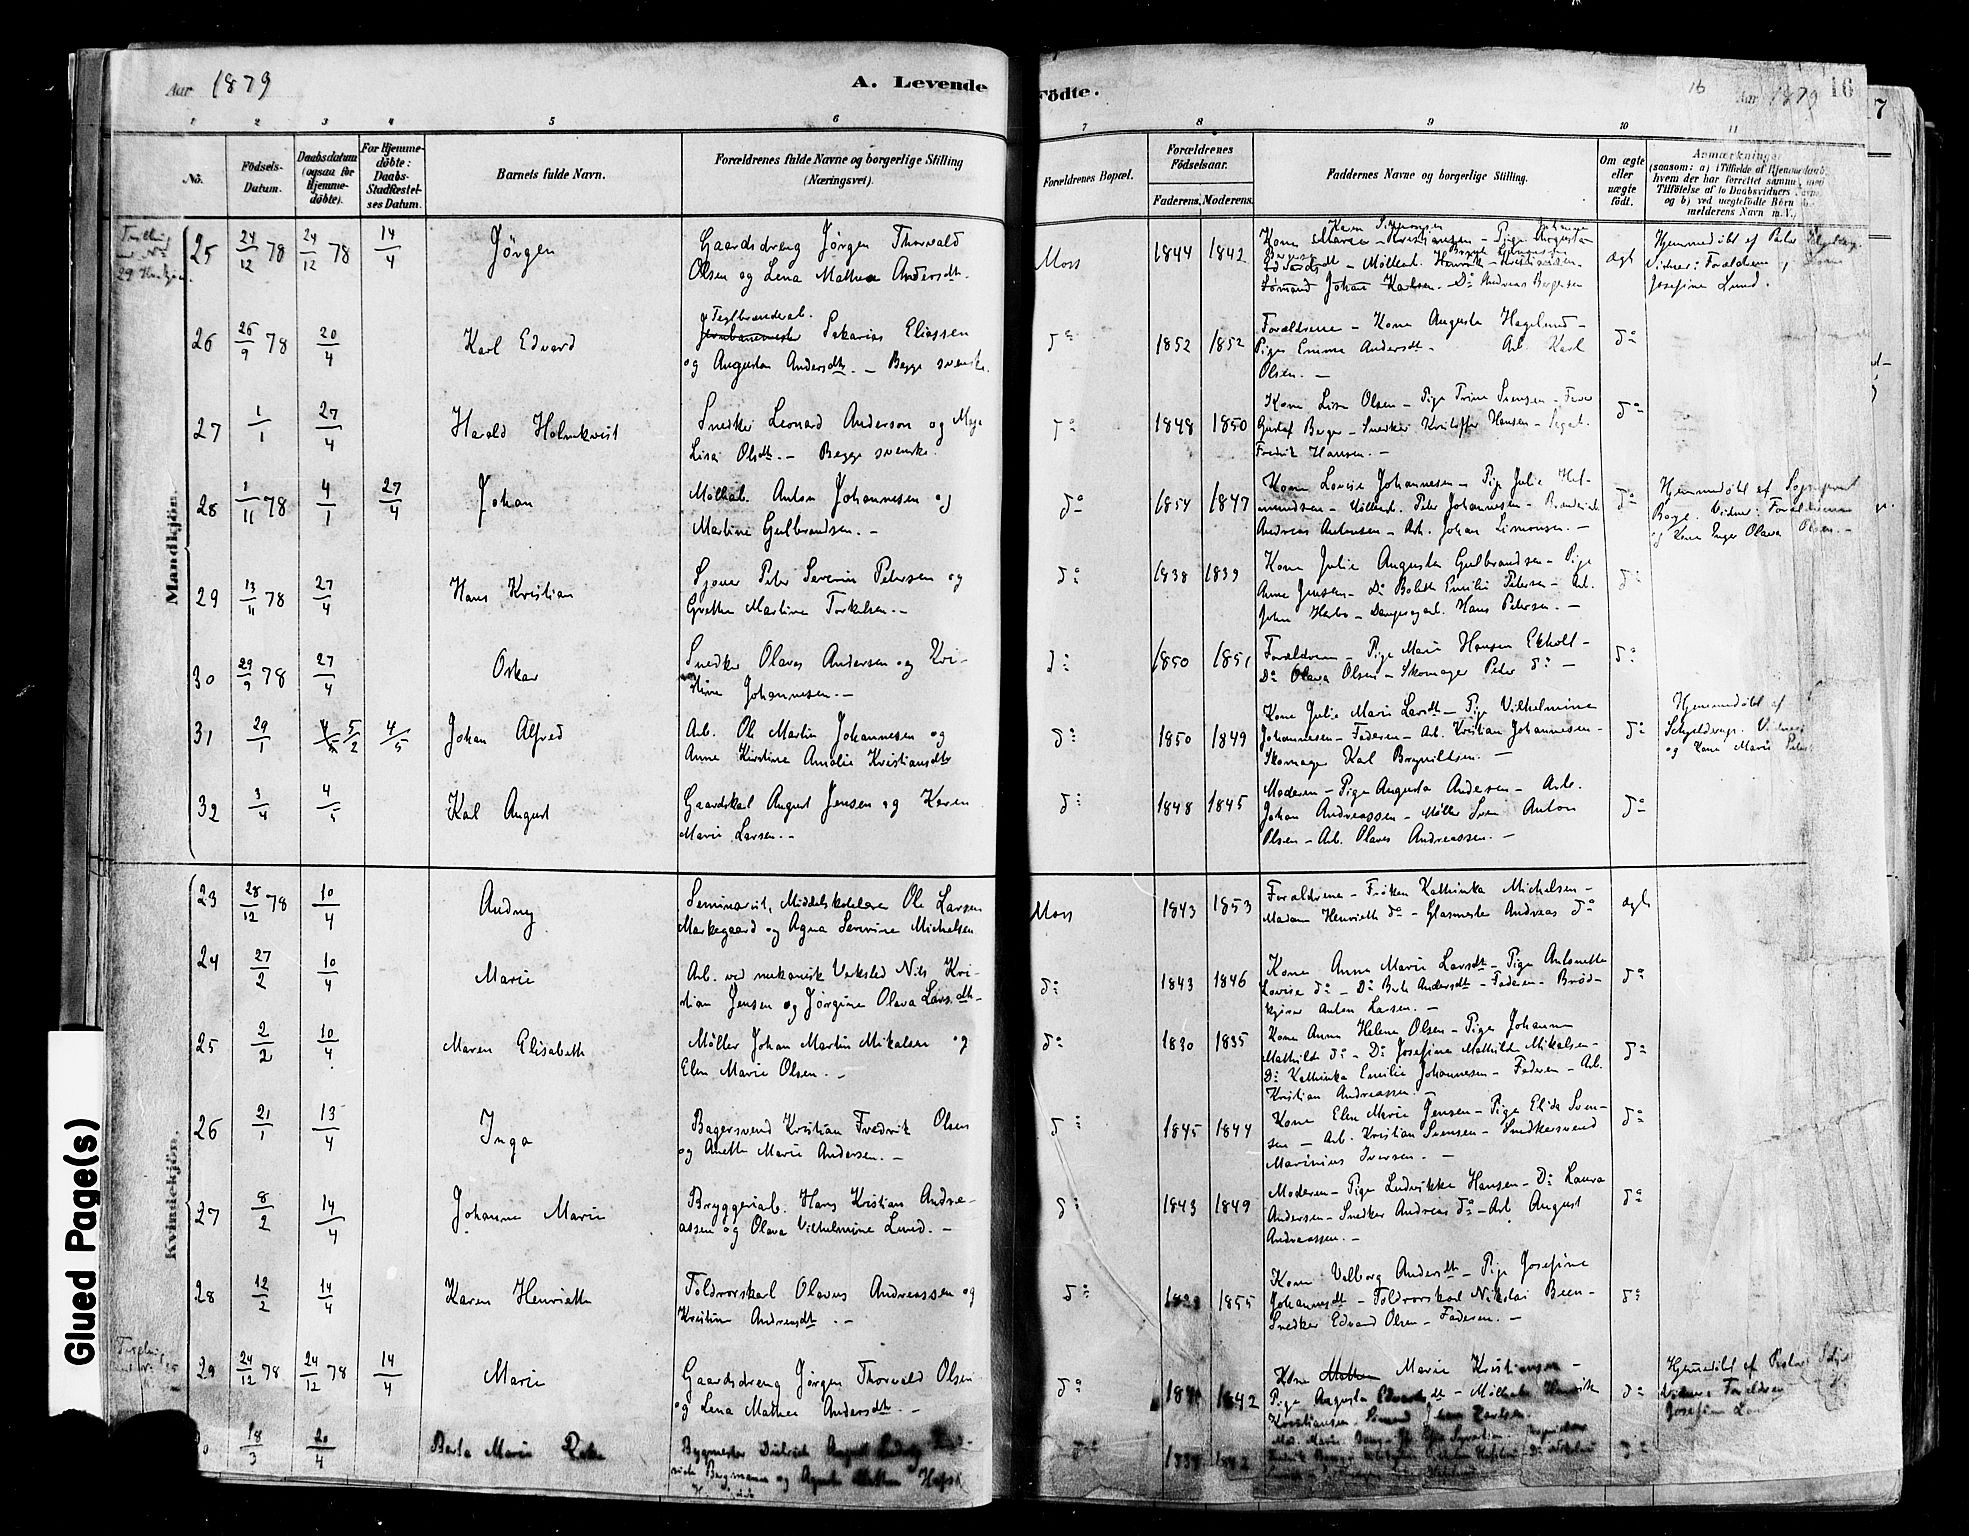 Aar 1879
A. Levende
Födte.
16
Aar 1879
16
7
1 2 3 4 5 6 7 8 9 10 11
No.
Födsels-
Datum.
Daabsdatum
(ogsaa for
Hjemme-
döbte).
For Hjemme-
döbte:
Daabs-
Stadfæstel-
ses Datum.
Barnets fulde Navn.
Forældrenes fulde Navne og borgerlige Stilling
(Næringsvei).
Forældrenes Bopæl.
Forældrenes
Födselsaar.
Faderens. Moderens.
Faddernes Navne og borgerlige Stilling.
Om ægte
eller
uægte
födt.
Anmærkninger
(saasom: a) i Tilfælde af Hjemmedaab,
hvem der har forrettet samme, med
Tilföielse af to Daabsvidners Navne,
og b) ved uægtefödte Börn
melderens Navn m. V.)
Mandkjön.
25 24/12 78 24/12 78 14/4 Jørgen
Gaardsdreng Jørgen Thorvald
Olsen og Lena Mathea Andersdtr.
Moss 1844 1842
Kone Maren Kristiansen – Pige Augusta
– Møllearb. Henrik Kristiansen
Sømand Johan Karlsen. – Do Andreas Bergersen
ægt
Hjemmedøbt af
Vidner: Forældrene
Josefine Lund.
26 26/9 78 20/4 Karl Edvard
Teglbrænderarb.
Sakarias Eliassen
og Augusta Andersdtr. – Begge svenske.
Do 1852 1852
Forældrene – Kone Augusta Hagelund –
Pige Emma Andersdtr. – Arb. Karl
Olsen. –
Do
27 1/1 27/4 Harald Holmkvist
Snedker Leonard Anderson og Maja
Lisa Olsdtr. – Begge svenske.
Do 1848 1850
Kone Lise Olsen – Pige Trine Svensen –
Gustaf Berger – Snedker Kristoffer Hansen –
Fredrik Hansen. –
Do
28 1/11 78 4/1 27/4 Johan
Møllearb. Anton Johannesen og
Martine Gulbrandsen. –
Do 1854 1847
Kone Lovise Johannesen – Pige Julie
– Møllearb. Peter Johannesen –
Andreas Antonsen – Arb. Johan Simonsen. –
Do
Hjemmedøbt af Sognepræst
Bøye. Vidner: Forældrene
og Kone Inger Olava Olsen. –
29 13/11 78 27/4 Hans Kristian
Sjouer Peter Severin Petersen og
Grethe Martine Torkelsen. –
Do 1838 1839
Kone Julie Augusta Gulbrandsen – Pige
Anne Jensen – Do Bolette Emilie Petersen – Arb.
John – Dampsagarb. Hans Petersen. –
Do
30 29/9 78 27/4 Oskar
Snedker Olaves Andersen og Kri-
stine Johannesen. –
Do 1850 1851
Forældrene – Pige Marie Hansen Ekholt –
Do Olava Olsen – Skomager Peter Do –
Do
31 29/1 5/2 4/5 Johan Alfred
Arb. Ole Martin Johannesen og
Anne Kirstine Amalie Kristiansdtr
Do 1850 1849
Kone Julie Marie Larsdtr – Pige Vilhelmine
Johannesen – Faderen – Arb. Kristian Johannesen –
Skomager Karl Brynildsen. –
Do
Hjemmedøbt af
Schjelderup.
og Kone Marie
32 3/4 4/5 Karl August
Gaardskarl August Jensen og Karen
Marie Larsen. –
Do 1848 1845
Moderen – Pige Augusta Andersen – Arb.
Johan Andreassen – Møller Sven Anton
Olsen – Arb. Olaves Andreassen. –
Do
Kvindekjön.
23 28/12 78 10/4 Audny
Seminarist, Middelskolelærer Ole Larsen
Markegaard og Agna Severine Michelsen
Moss 1843 1853
Forældrene – Frøken Kathinka Michelsen –
Madam Henriette Do – Glasmester Andreas Do
ægt
24 27/2 10/4 Marie
Arb. ved mekanisk Verksted Nils Kri-
stian Jensen og Jørgine Olava Larsdtr. –
Do 1843 1846
Kone Anne Marie Larsdtr – Pige Antonette
Lovise Do – Do Berte Andersdtr – Faderen – Brød-
kjører Anton Larsen. –
Do
25 2/2 10/4 Maren Elisabeth
Møller Johan Martin Mikalsen og
Elen Marie Olsen. –
Do 1830 1835
Kone Anne Helene Olsen – Pige Johanne
Mathilde Do – Do Josefine Mathilde Mikalsen –
Do Kathinka Emilie Johannesen – Faderen – Arb.
Kristian Andreassen. –
Do
26 21/1 13/4 Inga
Bagersvend Kristian Fredrik Olsen
og Anette Marie Andersen. –
Do 1845 1844
Kone Elen Marie Jensen – Pige Elida Sven-
sen – Arb. Kristian Svensen – Snedkersvend
Marinius Iversen. –
Do
27 8/2 14/4 Johanne Marie
Bryggeriarb. Hans Kristian Andre-
assen og Olava Vilhelmine Lund. –
Do 1843 1849
Moderen – Pige Ludvikke Hansen – Do Laura
Andersen – Snedker Andreas Do – Arb. August
Andreassen. –
Do
28 12/2 14/4 Karen Henriette
Toldrorskarl Olaves Andreassen og
Kristine Andreasdtr. –
Do 1855
Kone Valborg Andersdtr – Pige Josefine
Johannesdtr – Toldrorskarl Nikolai Been –
Snedker Edvard Olsen – Faderen. –
Do
29 24/12 78 24/12 78 14/4 Marie
Gaardsdreng Jørgen Thorvald Olsen
og Lena Mathea Andersdtr. –
Do 1844 1842
Kone Marie Kristiansen –
Pige Augusta – Møllearb. Henrik
Kristiansen. Sømand Johan Karlsen.
Do
Hjemmedøbt af
Vidner Forældrene
Josefine
18/3 20/4 Marie
Bygmester
Bergmann og
Do
Glued Page(s)